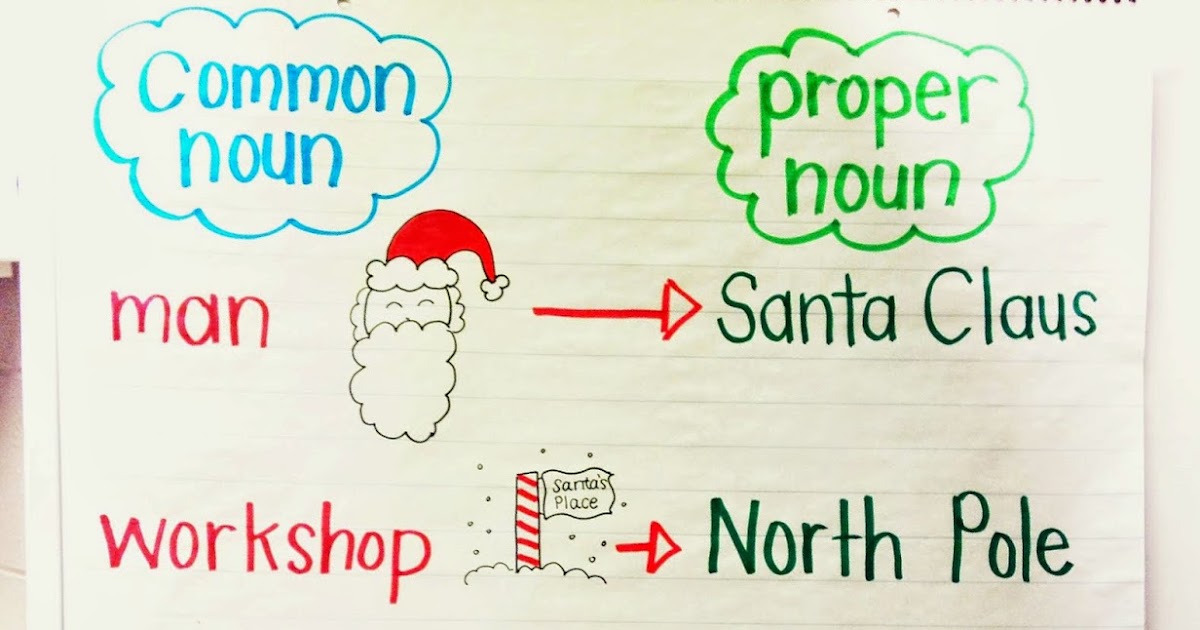 Common
noun
proper
noun
man
Santa Claus
workshop
Santa's
Place
North Pole